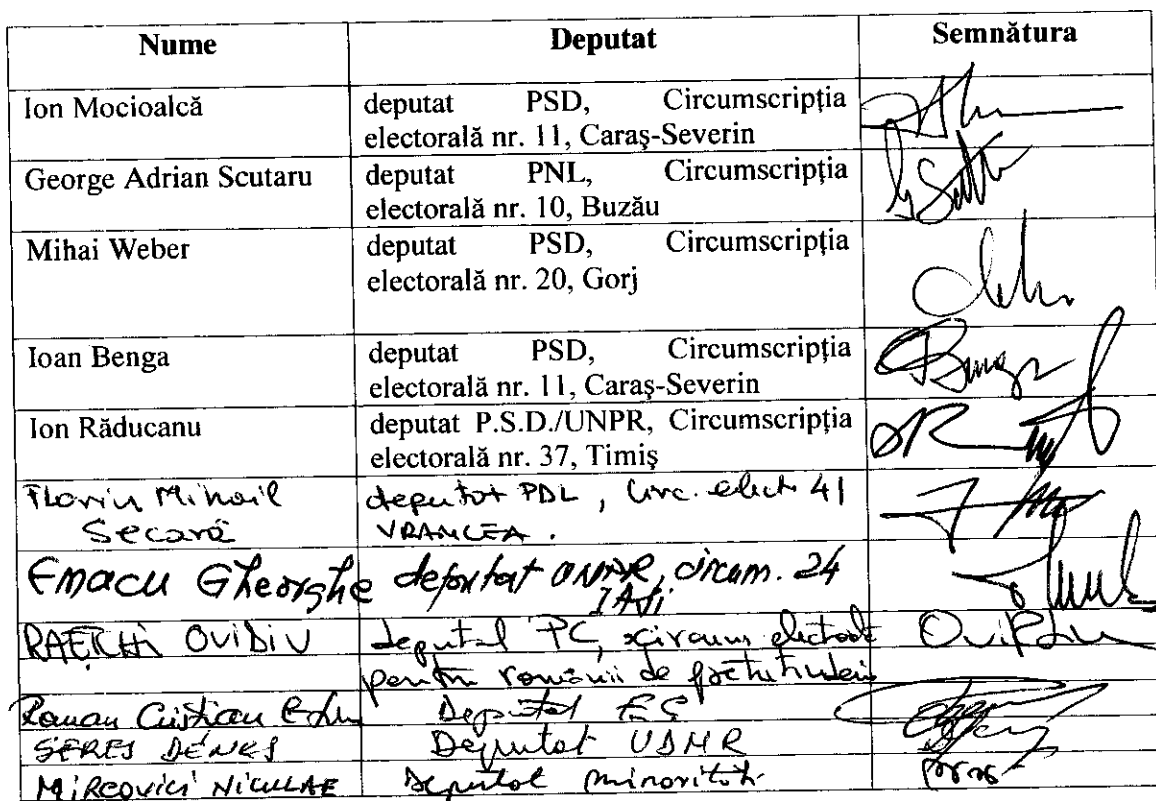 Nume Deputat Semnătura
Ion Mocioalcă deputat PSD, Circumscripţia
electorală nr. 11, Caraş-Severin
George Adrian Scutaru deputat PNL, Circumscripţia
electorală nr. 10, Buzău
Mihai Weber deputat PSD, Circumscripţia
electorală nr. 20, Gorj
Ioan Benga deputat PSD, Circumscripţia
electorală nr. 11, Caraş-Severin
Ion Răducanu deputat P.S.D./UNPR, Circumscripţia
electorală nr. 37, Timiş
Florin Mihail deputat PDL, Circ. elect. 41
Secară VRANCEA.
Emacu Gheorghe deputat UNPR, circum. 24
IAŞI
RAEŢCHI OVIDIU deputat PC,
pentru românii de
Roman Cristian Deputat
SERES DÉNES Deputat UDMR
MIRCOVICI NICULAE Deputat minorităţi